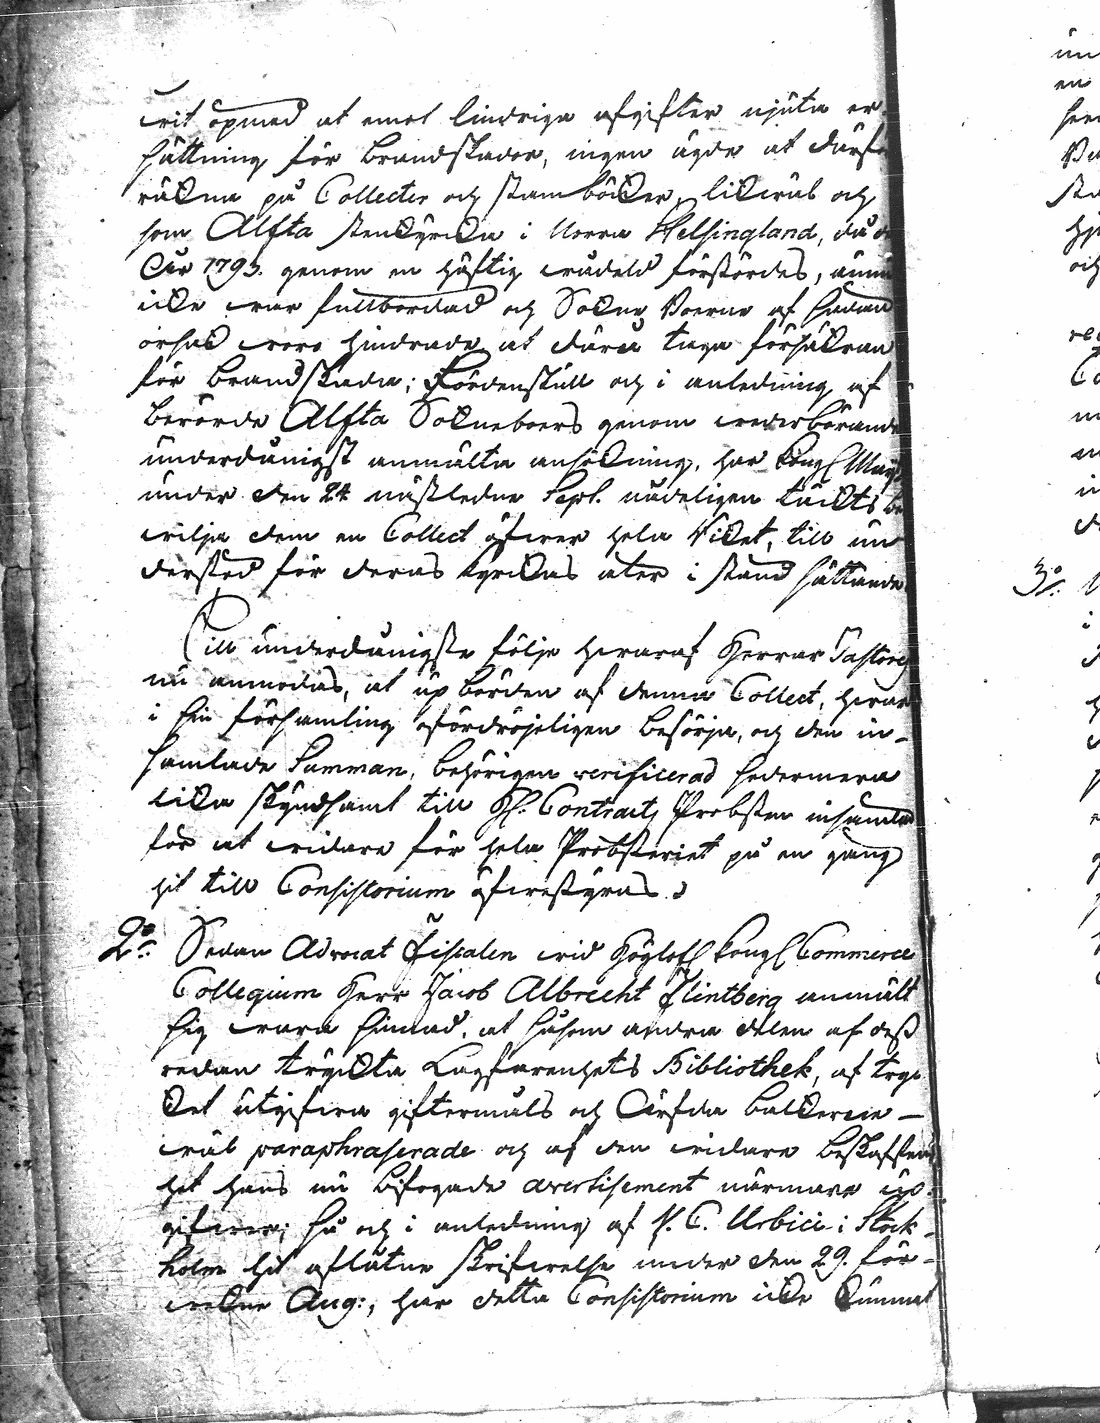 wit öpnad at emot lindriga afgifter njuta er-
sättning för Brandskador, ingen ägde at därför
räkna på Collecter och stamböcker, likwäl och
som Alfta stenkyrka i Norra Helsingland, då de
Åhr 1793. genom en häftig wådeld förstördes, ännu
icke war fullbordad och Sokne Boerne af sådan
orsak woro hindrade at däri taga försäkran
för Brandskada; Fördenskull och i anledning af
berörde Alfta Sokneboers genom wederbörande
underdånigst anmälta ansökning, har Kongl May:t
under den 24 nästledne Sept. nådeligen täckts be-
wilja dem en Collect öfwer hela Riket, till un-
derstöd för deras kyrkas åter i stånd sättande.
Till underdånigste följe häraf Herrar Pastorer
nu anmodas, at upbörden af denna Collect, hwar
i sin församling ofördröjeligen besörja, och den in-
samlade Summan, behörigen verificerad sedermera
lika skyndsamt till H. Contracts Probsten insända
för at widare för hela Probsteriet på en gång
hit till Consistorium öfwerstyras.
2:o Sedan Advocat Fiscalen wid Höglofl Kongl Commerce
Collegium Herr Jacob Albrecht Flintberg anmält
sig wara sinnad, at såsom andra delen af dess
redan tryckta Lagfarenhets Bibliothek, af tryc-
ket utgifwa giftermåls och Ärfda balkarne
wäl paraphraserade och af den widare beskaffen-
het hans nu bifogade avertisement närmare up-
gifwer; så och i anledning af P. C. Urbici i Stock-
holm hit aflåtne skrifwelse under den 29. för-
wekne Aug:, har detta Consistorium icke kunnat
3:o